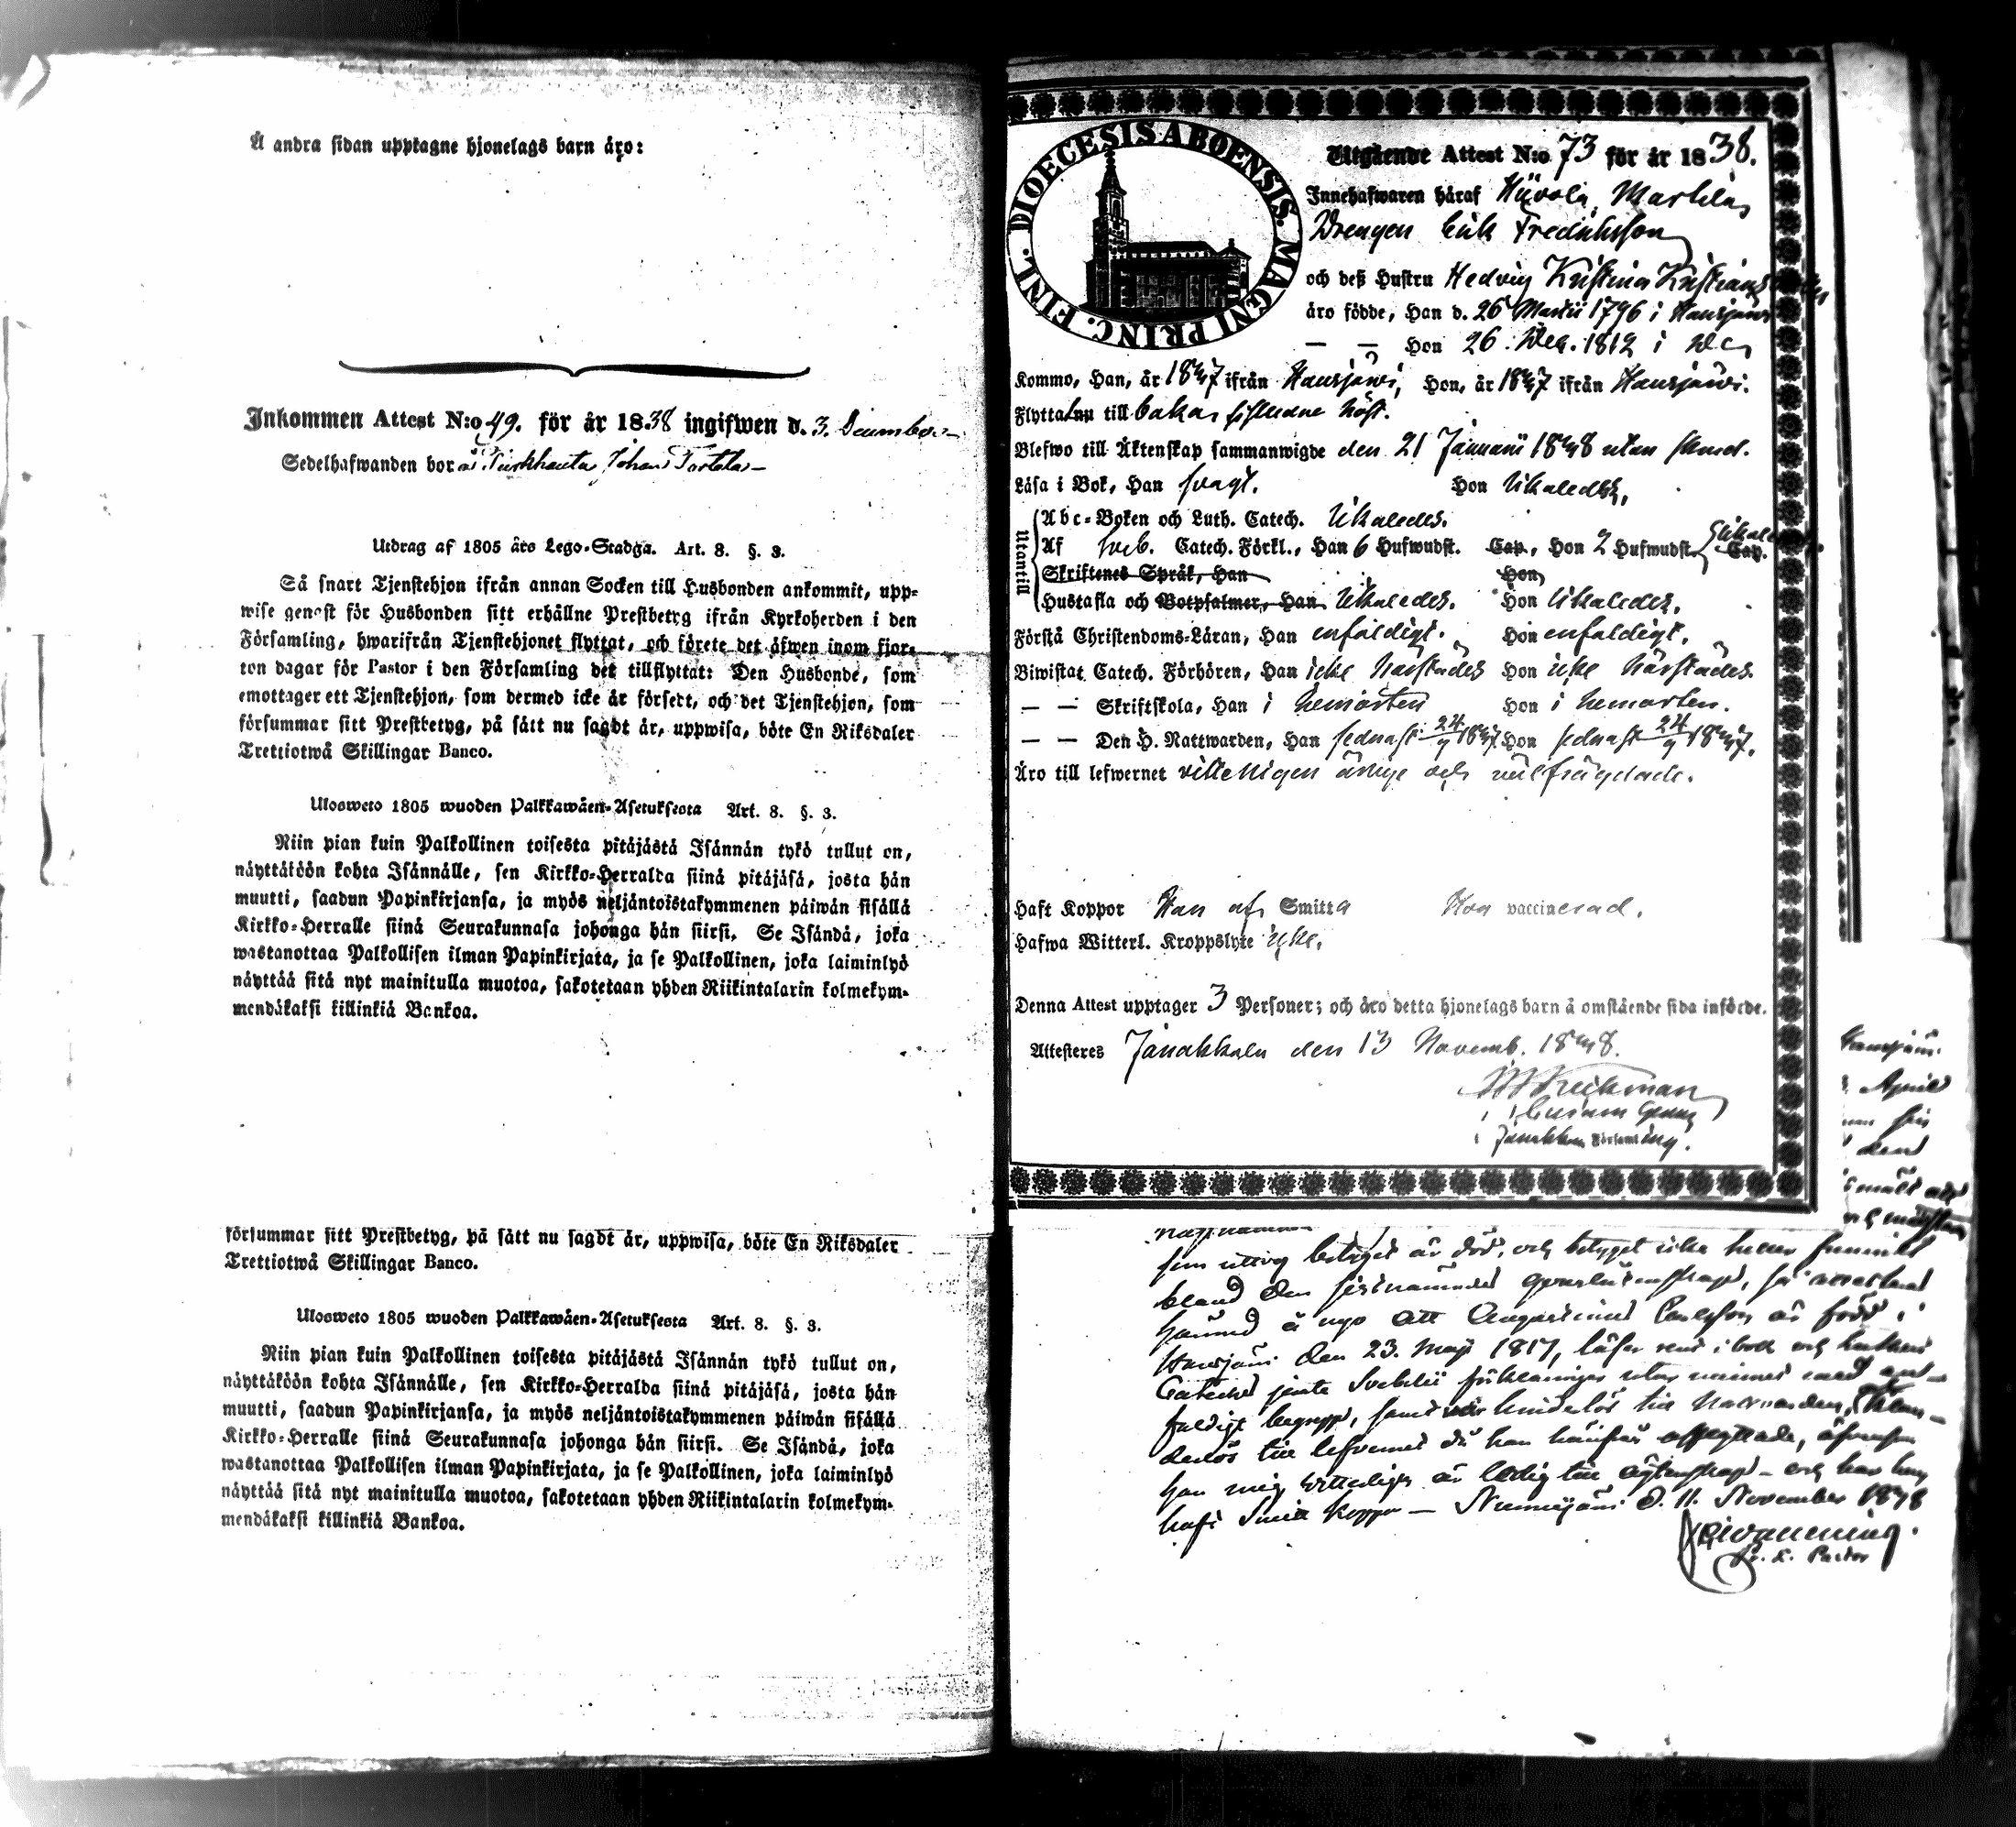 Å andra sidan upptagne hjonelags barn äro:
Inkommen Attest N:o 49. för år 1838 ingifwen d. 3. December
Sedelhafwanden bor å Turkhauta Johan
Utdrag af 1805 års Lego-Stadga. Art. 8. §. 3.
Så snart Tjenstehjon ifrån annan Socken till Husbonden ankommit, upp-
wise genast för Husbonden sitt erhållne Prestbetyg ifrån Kyrkoherden i den
Församling, hwarifrån Tjenstehjonet flyttat, och förete det äfwen inom fjor-
ton dagar för Pastor i den Församling det tillflyttat: Den Husbonde, som
emottager ett Tjenstehjon, som dermed icke är försedt, och det Tjenstehjon, som
försummar sitt Prestbetyg, på sätt nu sagdt är, uppwisa, böte En Riksdaler
Trettiotwå Skillingar Banco.
Ulosweto 1805 wuoden Palkkawäen-Asetuksesta Art. 8. §. 3.
Niin pian kuin Palkollinen toisesta pitäjästä Isännän tykö tullut on,
näyttäköön kohta Isännälle, sen Kirkko-Herralda siinä pitäjäsä, josta hän
muutti, saadun Papinkirjansa, ja myös neljäntoistakymmenen päiwän sisällä
Kirkko-Herralle siinä Seurakunnasa johonga hän siirsi. Se Isändä, joka
wastanottaa Palkollisen ilman Papinkirjata, ja se Palkollinen, joka laiminlyö
näyttää sitä nyt mainitulla muotoa, sakotetaan yhden Riikintalarin kolmekym-
mendäkaksi killinkiä Bankoa.
försummar sitt Prestbetyg, på sätt nu sagdt är, uppwisa, böte En Riksdaler
Trettiotwå Skillingar Banco.
Ulosweto 1805 wuoden Palkkawäen-Asetuksesta Art. 8. §. 3.
Niin pian kuin Palkollinen toisesta pitäjästä Isännän tykö tullut on,
näyttäköön kohta Isännälle, sen Kirkko-Herralda siinä pitäjäsä, josta hän
muutti, saadun Papinkirjansa, ja myös neljäntoistakymmenen päiwän sisällä
Kirkko-Herralle siinä Seurakunnasa johonga hän siirsi. Se Isändä, joka
wastanottaa Palkollisen ilman Papinkirjata, ja se Palkollinen, joka laiminlyö
näyttää sitä nyt mainitulla muotoa, sakotetaan yhden Riikintalarin kolmekym-
mendäkaksi killinkiä Bankoa.
DIOECESIS ABOENSIS. MAGNI PRINC. FINL.
Utgående Attest N:o 73 för år 1838.
Innehafwaren häraf Marttila
Drengen Erik Fredriksson
och deß Hustru Hedvig Kristina Kristians
äro födde, Han d. 26 Martii 1796 i Hausjärvi
— — Hon 26. Dec. 1812 i
Kommo, Han, år 1837 ifrån Hausjärvi, Hon, år 1837 ifrån Hausjärvi.
Flytta nu till bakas sistledne höst.
Blefwo till Äktenskap sammanwigde den 21 Januarii 1838 utan
Läsa i Bok, Han svagt. Hon likaledes.
Utantill
Abc-Boken och Luth. Catech. likaledes.
Af Sveb. Catech. Förkl., Han 6 Hufwudst. Cap., Hon 2 Hufwudst. Cap. likaledes.
Skriftenes Språk, Han Hon
Hustafla och Botpsalmer, Han likaledes. Hon likaledes.
Förstå Christendoms-Läran, Han enfaldigt. Hon enfaldigt.
Biwistat Catech. Förhören, Han icke härstädes Hon icke härstädes.
— — Skriftskola, Han i hemorten Hon i hemorten.
— — Den H. Nattwarden, Han sednast 24/9 1837 Hon sednast 24/9 1837.
Äro till lefwernet vitterligen ärlige och välfrägdade.
Haft Koppor Han af Smitta Hon vaccinerad.
Hafwa Witterl. Kroppslyte icke.
Denna Attest upptager 3 Personer; och äro detta hjonelags barn å omstående sida införde.
Attesteres Janakkala den 13 Novemb. 1838.
i Janakkala Församling.
Hausjärvi
April
den
bland den
att Augustinus Carlsson är född i
Hausjärvi den 23. Maji 1817, läser rent i bok och
Catechis jemte Svebilii förklaringar utan minnet med en-
faldigt begrepp, samt
derlös till lefvernet då han härifrån afflyttade, äfvensom
han mig vitterligen är ledig till ägtenskap – och har han
haft Smitt koppor – Nurmijärvi d. 11. November 1838
Pastor